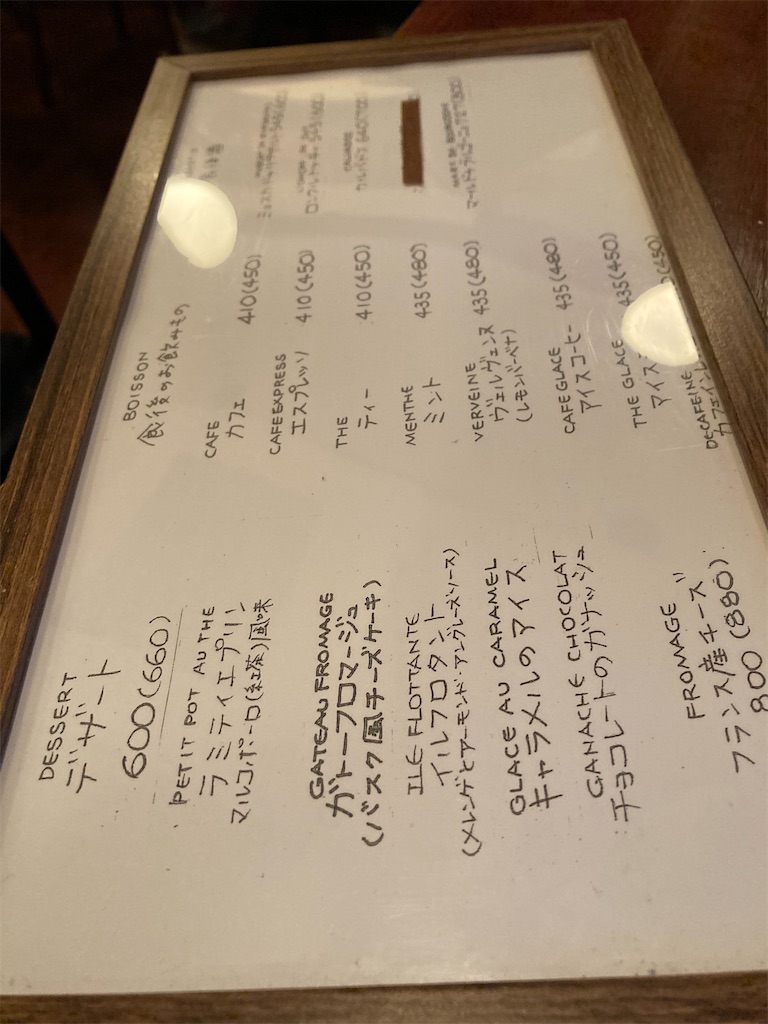 DESSERT
デザート
600(660)
PETIT POT AU THE
ラミティエプリン
マルコポーロ(紅茶)風味
GATEAU FROMAGE
ガトーフロマージュ
(バスク風チーズケーキ)
ILE FLOTTANTE
イルフロタント
(メレンゲとアーモンド・アングレーズソース)
GLACE AU CARAMEL
キャラメルのアイス
GANACHE CHOCOLAT
チョコレートのガナッシュ
FROMAGE
フランス産チーズ
800(880)
BOISSON
食後のお飲みもの
CAFE
カフェ 410(450)
CAFE EXPRESS
エスプレッソ 410(450)
THE
ティー 410(450)
MENTHE
ミント 435(480)
VERVEINE
ヴェルヴェンヌ 435(480)
(レモンバーベナ)
CAFE GLACE
アイスコーヒー 435(480)
THE GLACE
アイス 435(450)
DECAFEINE
CALVADOS
カルバドス 640(700)
MARC DE BOURGOGNE